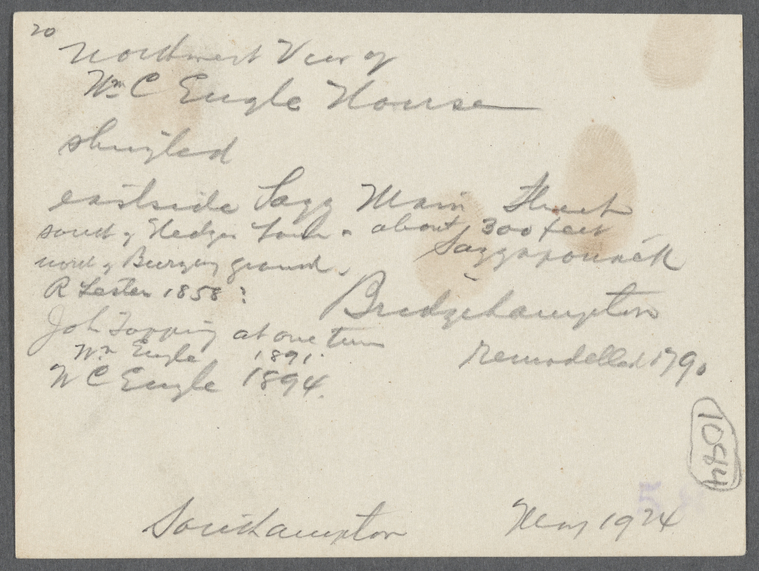 20
Northwest View of
Wm C Eugle House
shingled
eastside Sagg Main Street
south of Hedges Lane - about 300 feet
north of Burying ground. Saggaponack
R Lester 1858: Bridgehampton
Joh Topping at one time
Wm Eugle 1891. Remodelled 1790
W C Eugle 1894.
1084
Southampton May 1924